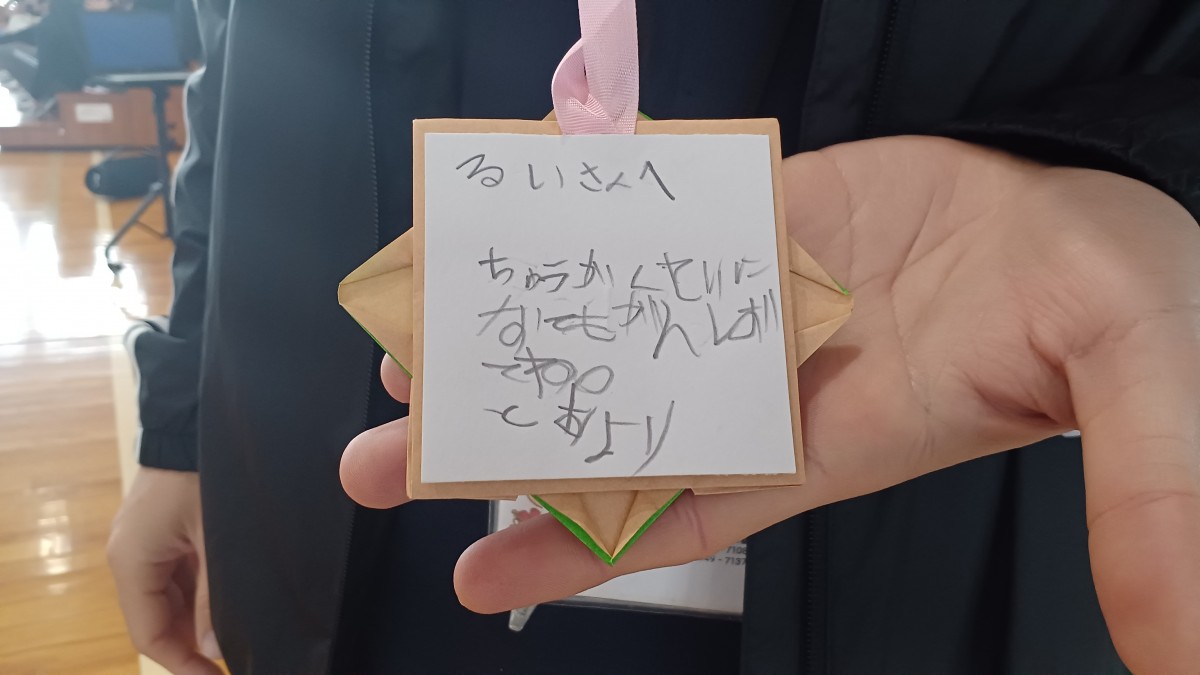 るいさんへ
ちゅうがくせいに
なってもがんばっ
てね。
とあより
7108
49-7137